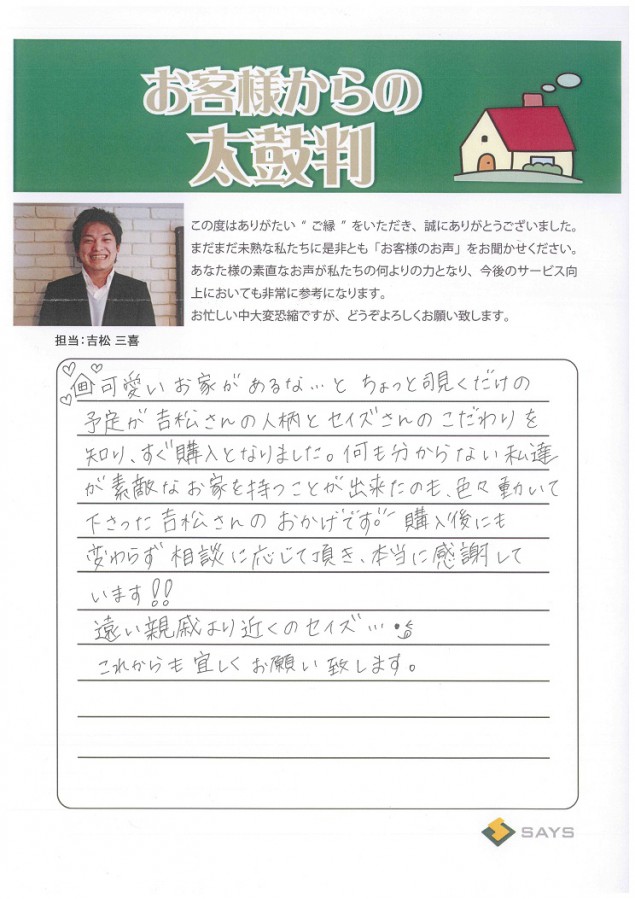 お客様からの
太鼓判
この度はありがたい“ご縁”をいただき、誠にありがとうございました。
まだまだ未熟な私たちに是非とも「お客様のお声」をお聞かせください。
あなた様の素直なお声が私たちの何よりの力となり、今後のサービス向
上においても非常に参考になります。
お忙しい中大変恐縮ですが、どうぞよろしくお願い致します。
担当:吉松 三喜
可愛いお家があるな…と ちょっと覗くだけの
予定が吉松さんの人柄とセイズさんのこだわりを
知り、すぐ購入となりました。何も分からない私達
が素敵なお家を持つことが出来たのも、色々動いて
下さった吉松さんのおかげです。購入後にも
変わらず相談に応じて頂き、本当に感謝して
います!!
遠い親戚より近くのセイズ…
これからも宜しくお願い致します。
SAYS